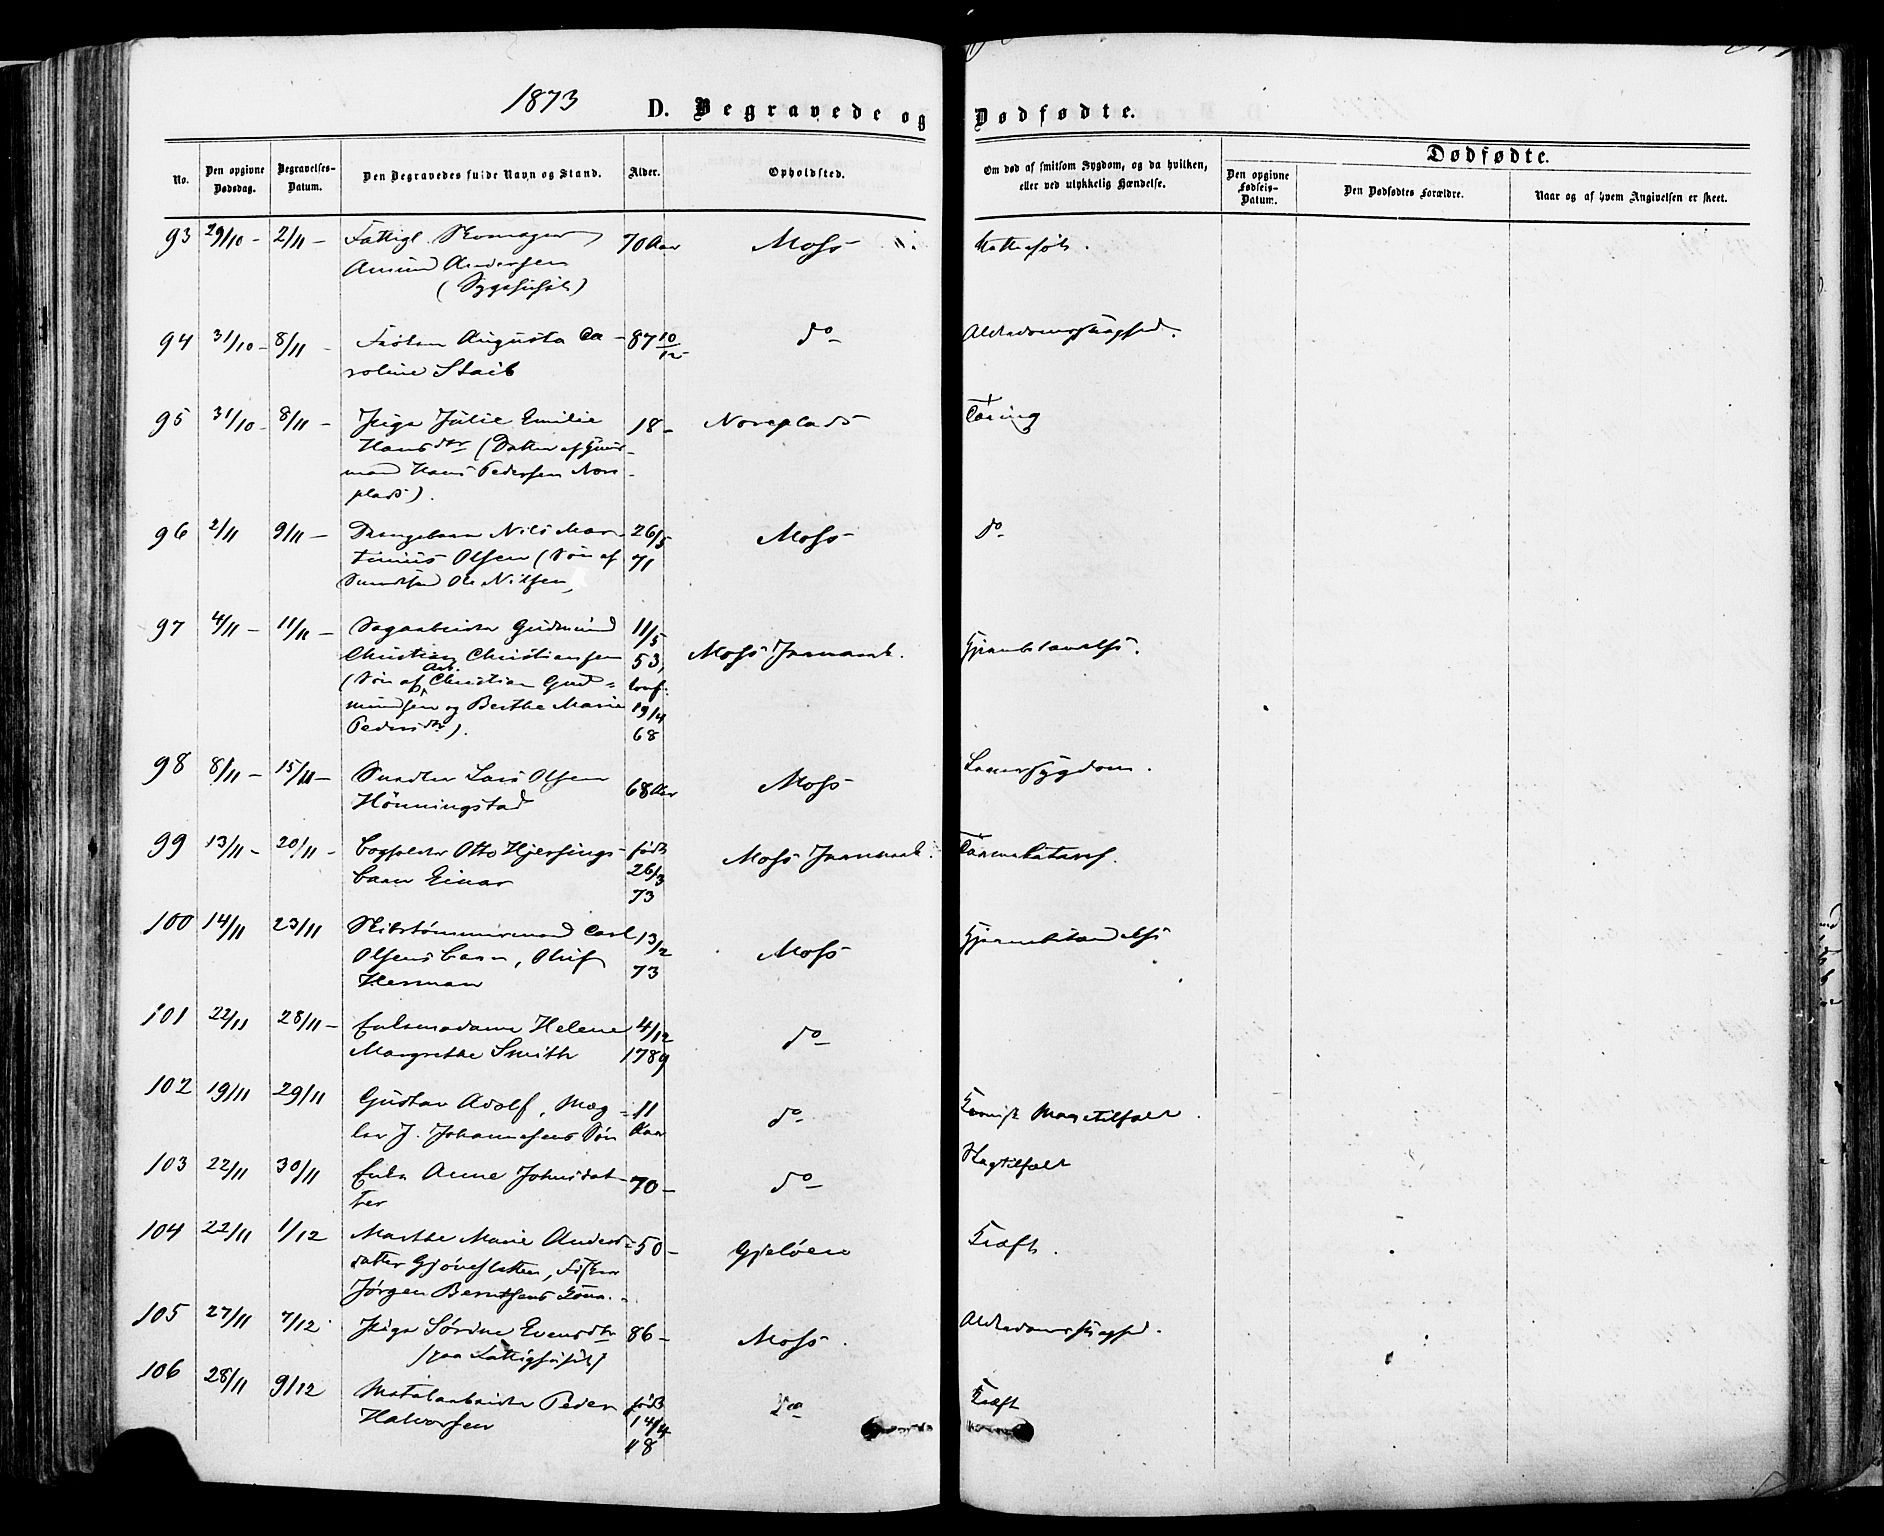 1873
D. Begravede og Dødfødte.
No.
Den opgivne Dødsdag.
Begravelses-Datum.
Den Begravedes fulde Navn og Stand.
Alder.
Opholdsted.
Om død af smitsom Sygdom, og da hvilken, eller ved ulykkelig Hændelse.
Dødfødte.
Den opgivne Fødsels-Datum.
Den Dødfødtes Forældre.
Naar og af hvem Angivelsen er skeet.
93 29/10 - 2/11 - Fattigl. Skomager 70 Aar Moss
Amund Andersen
(Sygehuset)
94 31/10 - 8/11 - Frøken Augusta Ca- 87 10/12 do Alderdomssvaghed.
roline Staib
95 31/10 - 8/11 - Pige Julie Emilie 18 - Noreplads Tæring
Hansdtr (Datter af Huus-
mand Hans Pedersen Nore
plads).
96 2/11 9/11 - Drengebarn Nils Mar- 26/5 Moss do
tinius Olsen (Søn af 71
Ole Nilsen,
97 4/11 - 11/11 - Sagarbeider Gudmund 11/5
Christian Christiansen 53, Moss Jernverk.
(Søn af Arb. Christian Gud- conf:
mundsen og Berthe Marie 19/4
Pedersdtr). 68
98 8/11 - 15/11 - Lars Olsen 68 Aar Moss
Hønningstad
99 13/11 - 20/11 - Bogholder Otto Hjersings- født Moss Jernverk. Tarmekatarrh.
barn Einar 26/3
73
100 14/11 23/11 Skibstømmermand Carl 13/2 Moss
Olsens barn, Oluf 73
Herman
101 22/11 28/11 - Enkemadame Helene 4/12 do
Margrethe Smith 1789
102 19/11 29/11 Gustav Adolf, Mæg- 11 do
ler J. Johannesens Søn Aar
103 22/11 30/11 Enke Anne Johnsdat- 70 - do Slagtilfæld
ter
104 22/11 1/12 Marthe Marie Anders- 50 - Gjeløen Kræft.
datter Gjøvesletten, Fisker
Jørgen Berntsens Kone.
105 27/11 7/12 Pige Sørine Evensdtr 86 - Moss. Alderdomssvaghed.
(paa Fattighuset)
106 28/11 9/12 Metalarbeider Peder født do Kræft
Halvorsen 14/4
18